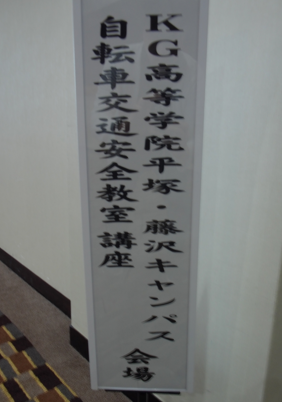 KG高等学院平塚・藤沢キャンパス
自転車交通安全教室 講座
会場